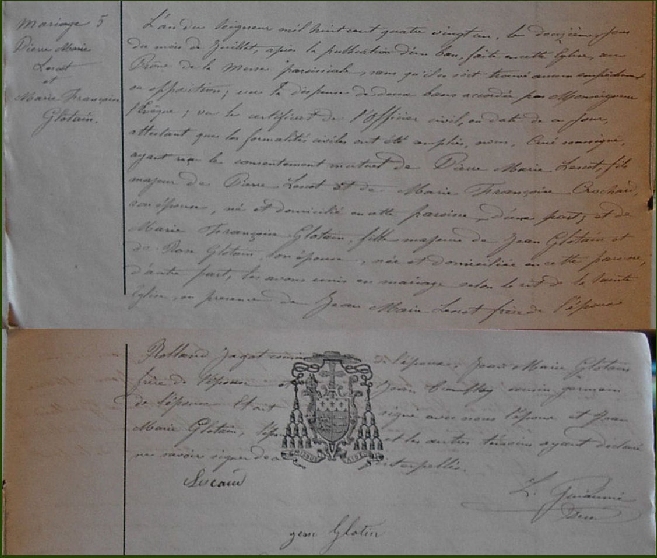 Mariage 5
Pierre Marie
Lescot
et
Marie Françoise
Glotain.
L'an du Seigneur mil huit cent quatre vingt un, le douzième jour
du mois de Juillet, après la publication d'un ban, faite en cette Eglise, au
Prône de la Messe paroissiale, sans qu'il se soit trouvé aucun empêchement
ou opposition; vu la dispense de deux bans accordée par Monseigneur
l'évêque; vu le certificat de l'Officier civil, en date de ce jour,
attestant que les formalités civiles ont été remplies, nous, Curé soussigné,
ayant reçu le consentement mutuel de Pierre Marie Lescot, fils
majeur de Pierre Lescot et de Marie Françoise
son épouse, né et domicilié en cette paroisse, d'une part; et de
Marie Françoise Glotain, fille majeure de Jean Glotain et
de Rose Glotain, son épouse, née et domiciliée en cette paroisse,
d'autre part, les avons unis en mariage selon le rit de la Sainte
Eglise, en présence de Jean Marie Lescot frère de l'époux
Rolland Jagot cousin de l'époux, Jean Marie Glotain
frère de l'épouse Jean cousin germain
de l'épouse signé avec nous l'époux et Jean
Marie Glotain, et les autres témoins ayant déclaré
ne savoir signer de ce interpellés.
Lescaut
L.
Glotin